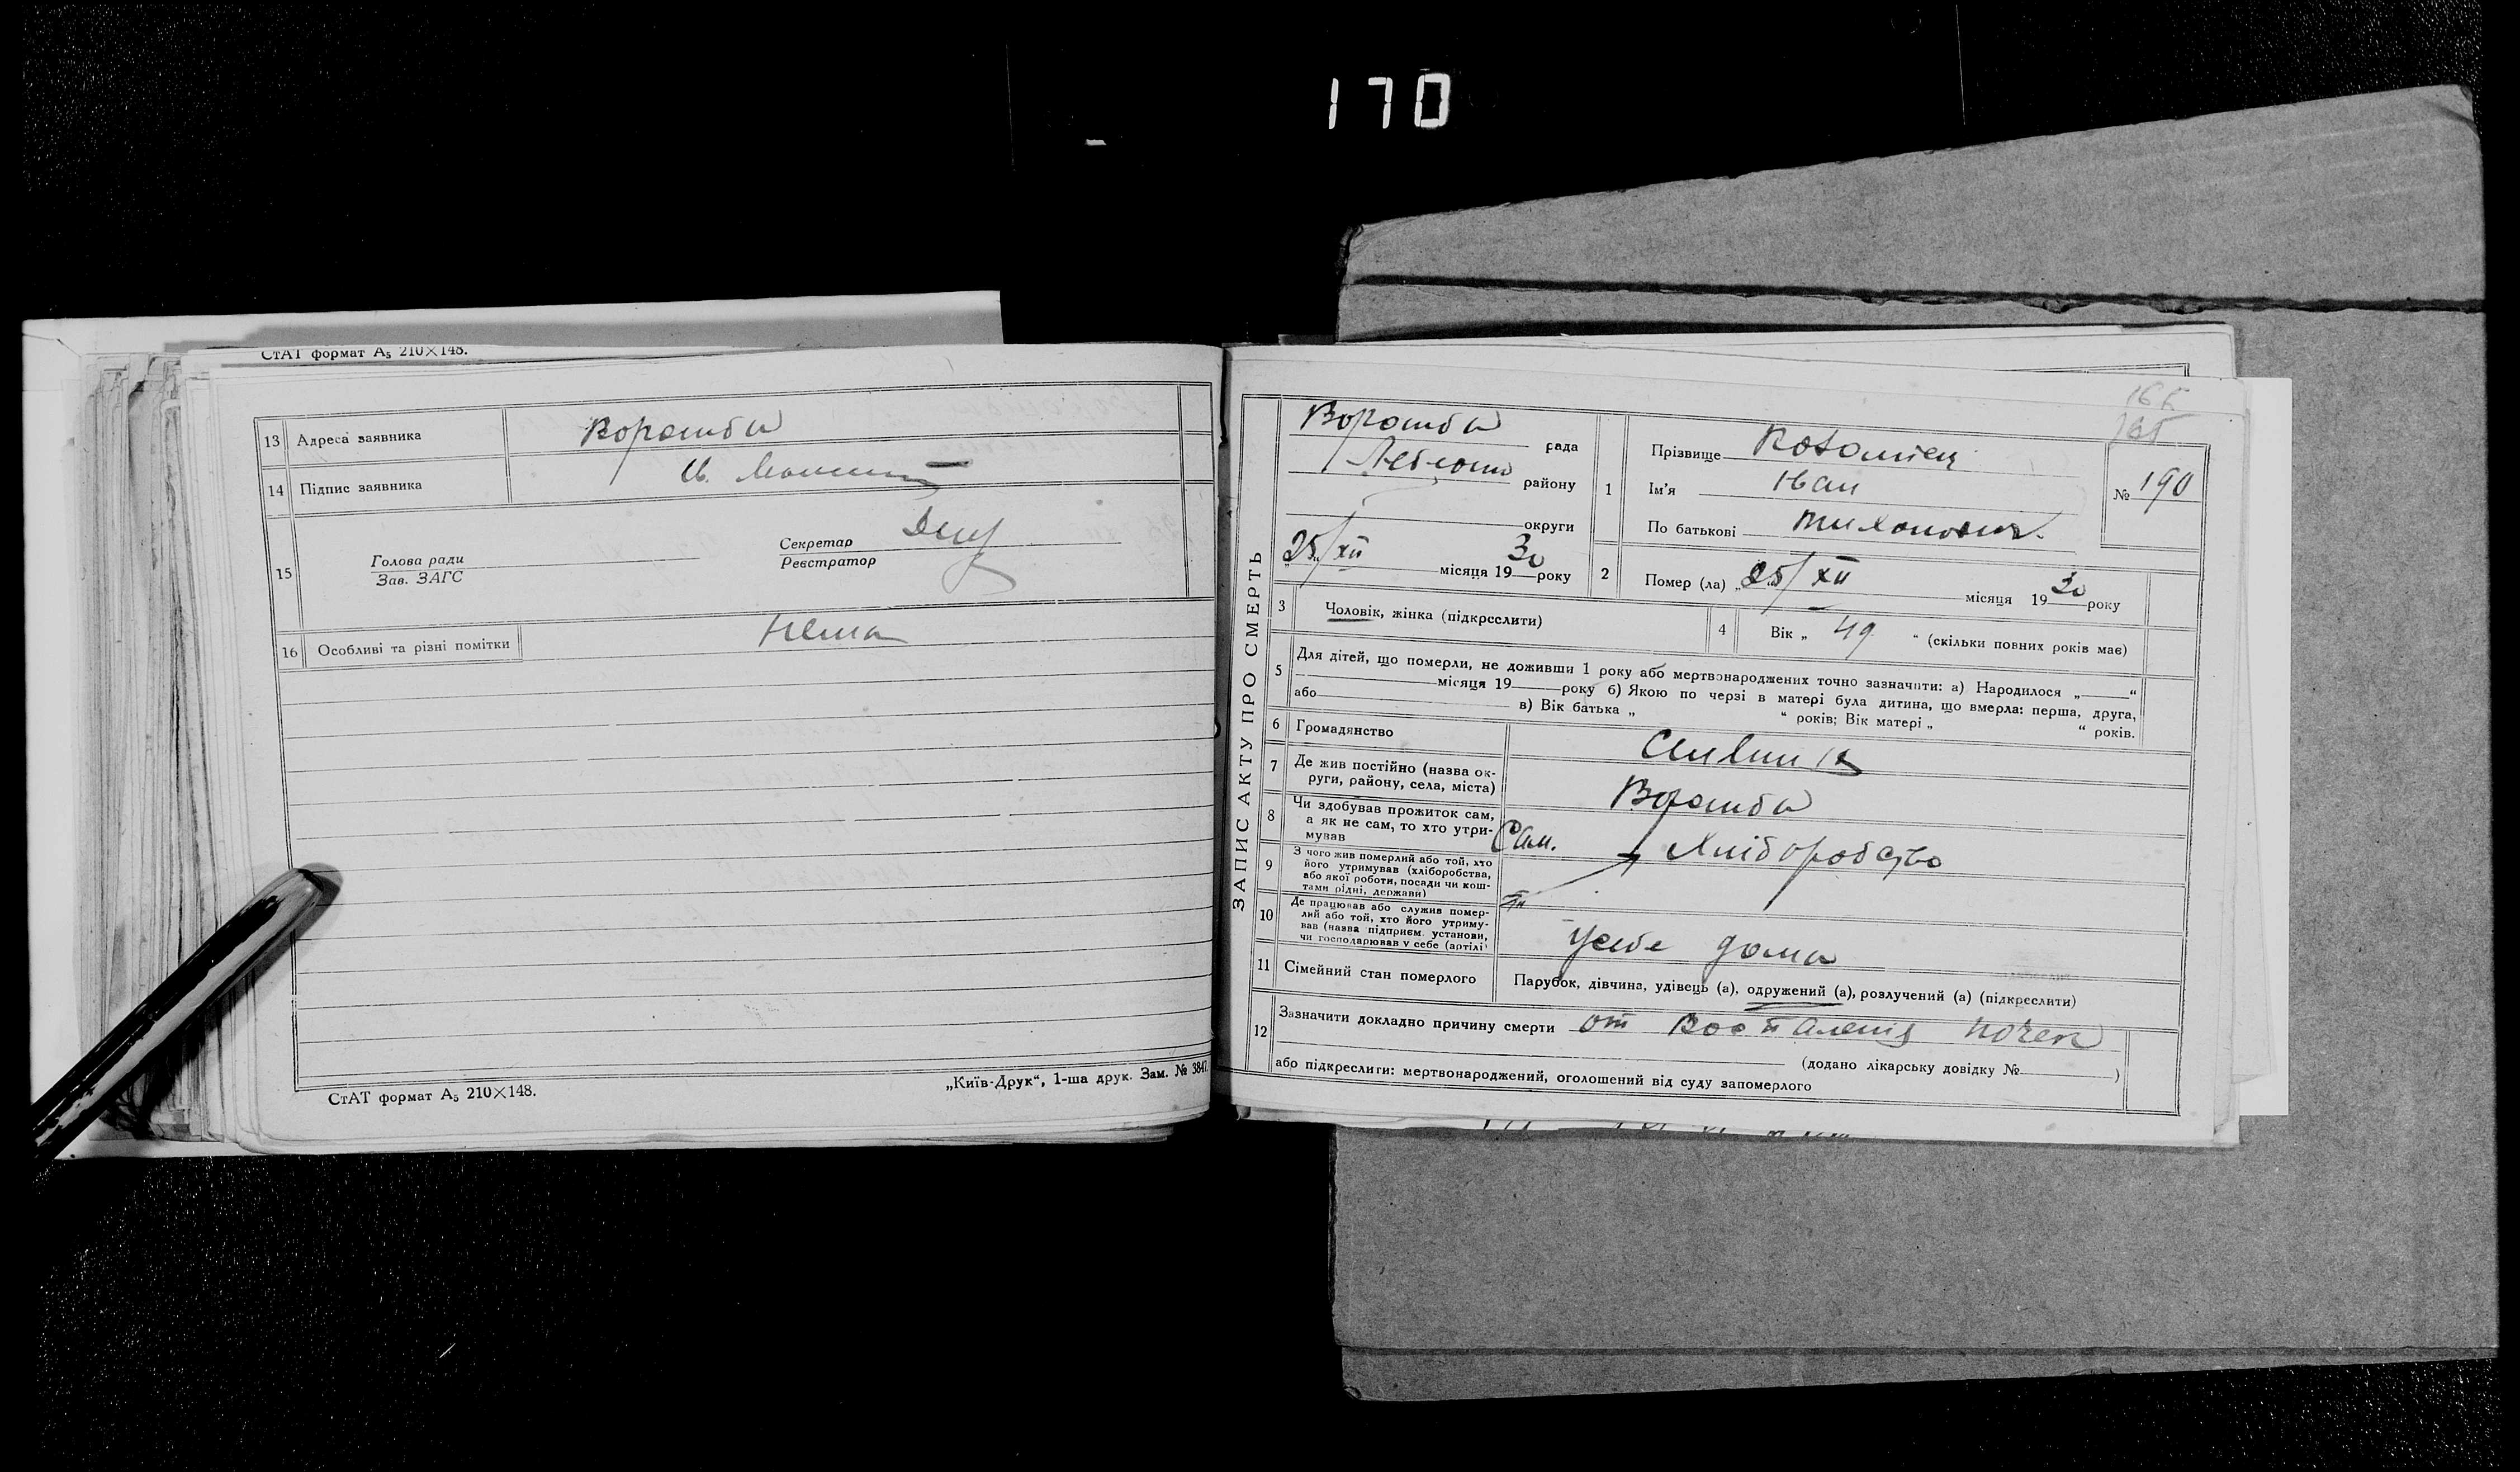 170
СтАТ формат А₅ 210×148.
13 Адреса заявника Ворожба
14 Підпис заявника
15 Голова ради
Зав. ЗАГС
Секретар
Реєстратор
16 Особливі та різні помітки Нема
СтАТ формат А₅ 210×148.
„Київ-Друк“, 1-ша друк. Зам. № 3847.
ЗАПИС АКТУ ПРО СМЕРТЬ
Ворожба рада
району
округи
25/XII місяця 1930 року
165
1 Прізвище
Ім'я Іван
По батькові
№ 190
2 Помер (ла) „25/XII місяця 1930 року
3 Чоловік, жінка (підкреслити)
4 Вік „ 49 “ (скільки повних років має)
5 Для дітей, що померли, не доживши 1 року або мертвонароджених точно зазначити: а) Народилося „ “
місяця 19 року б) Якою по черзі в матері була дитина, що вмерла: перша, друга,
або в) Вік батька „ “ років; Вік матері „ “ років.
6 Громадянство
7 Де жив постійно (назва ок-
руги, району, села, міста) Ворожба
8 Чи здобував прожиток сам,
а як не сам, то хто утри-
мував Сам.
9 З чого жив померлий або той, хто
його утримував (хліборобства,
або якої роботи, посади чи кош-
тами рідні, держави) Хліборобство
10 Де працював або служив помер-
лий або той, хто його утриму-
вав (назва підприєм. установи,
чи господарював у себе (артілі) усебе дома
11 Сімейний стан померлого Парубок, дівчина, удівець (а), одружений (а), розлучений (а) (підкреслити)
12 Зазначити докладно причину смерти от Воспаления почек
(додано лікарську довідку № )
або підкреслити: мертвонароджений, оголошений від суду запомерлого